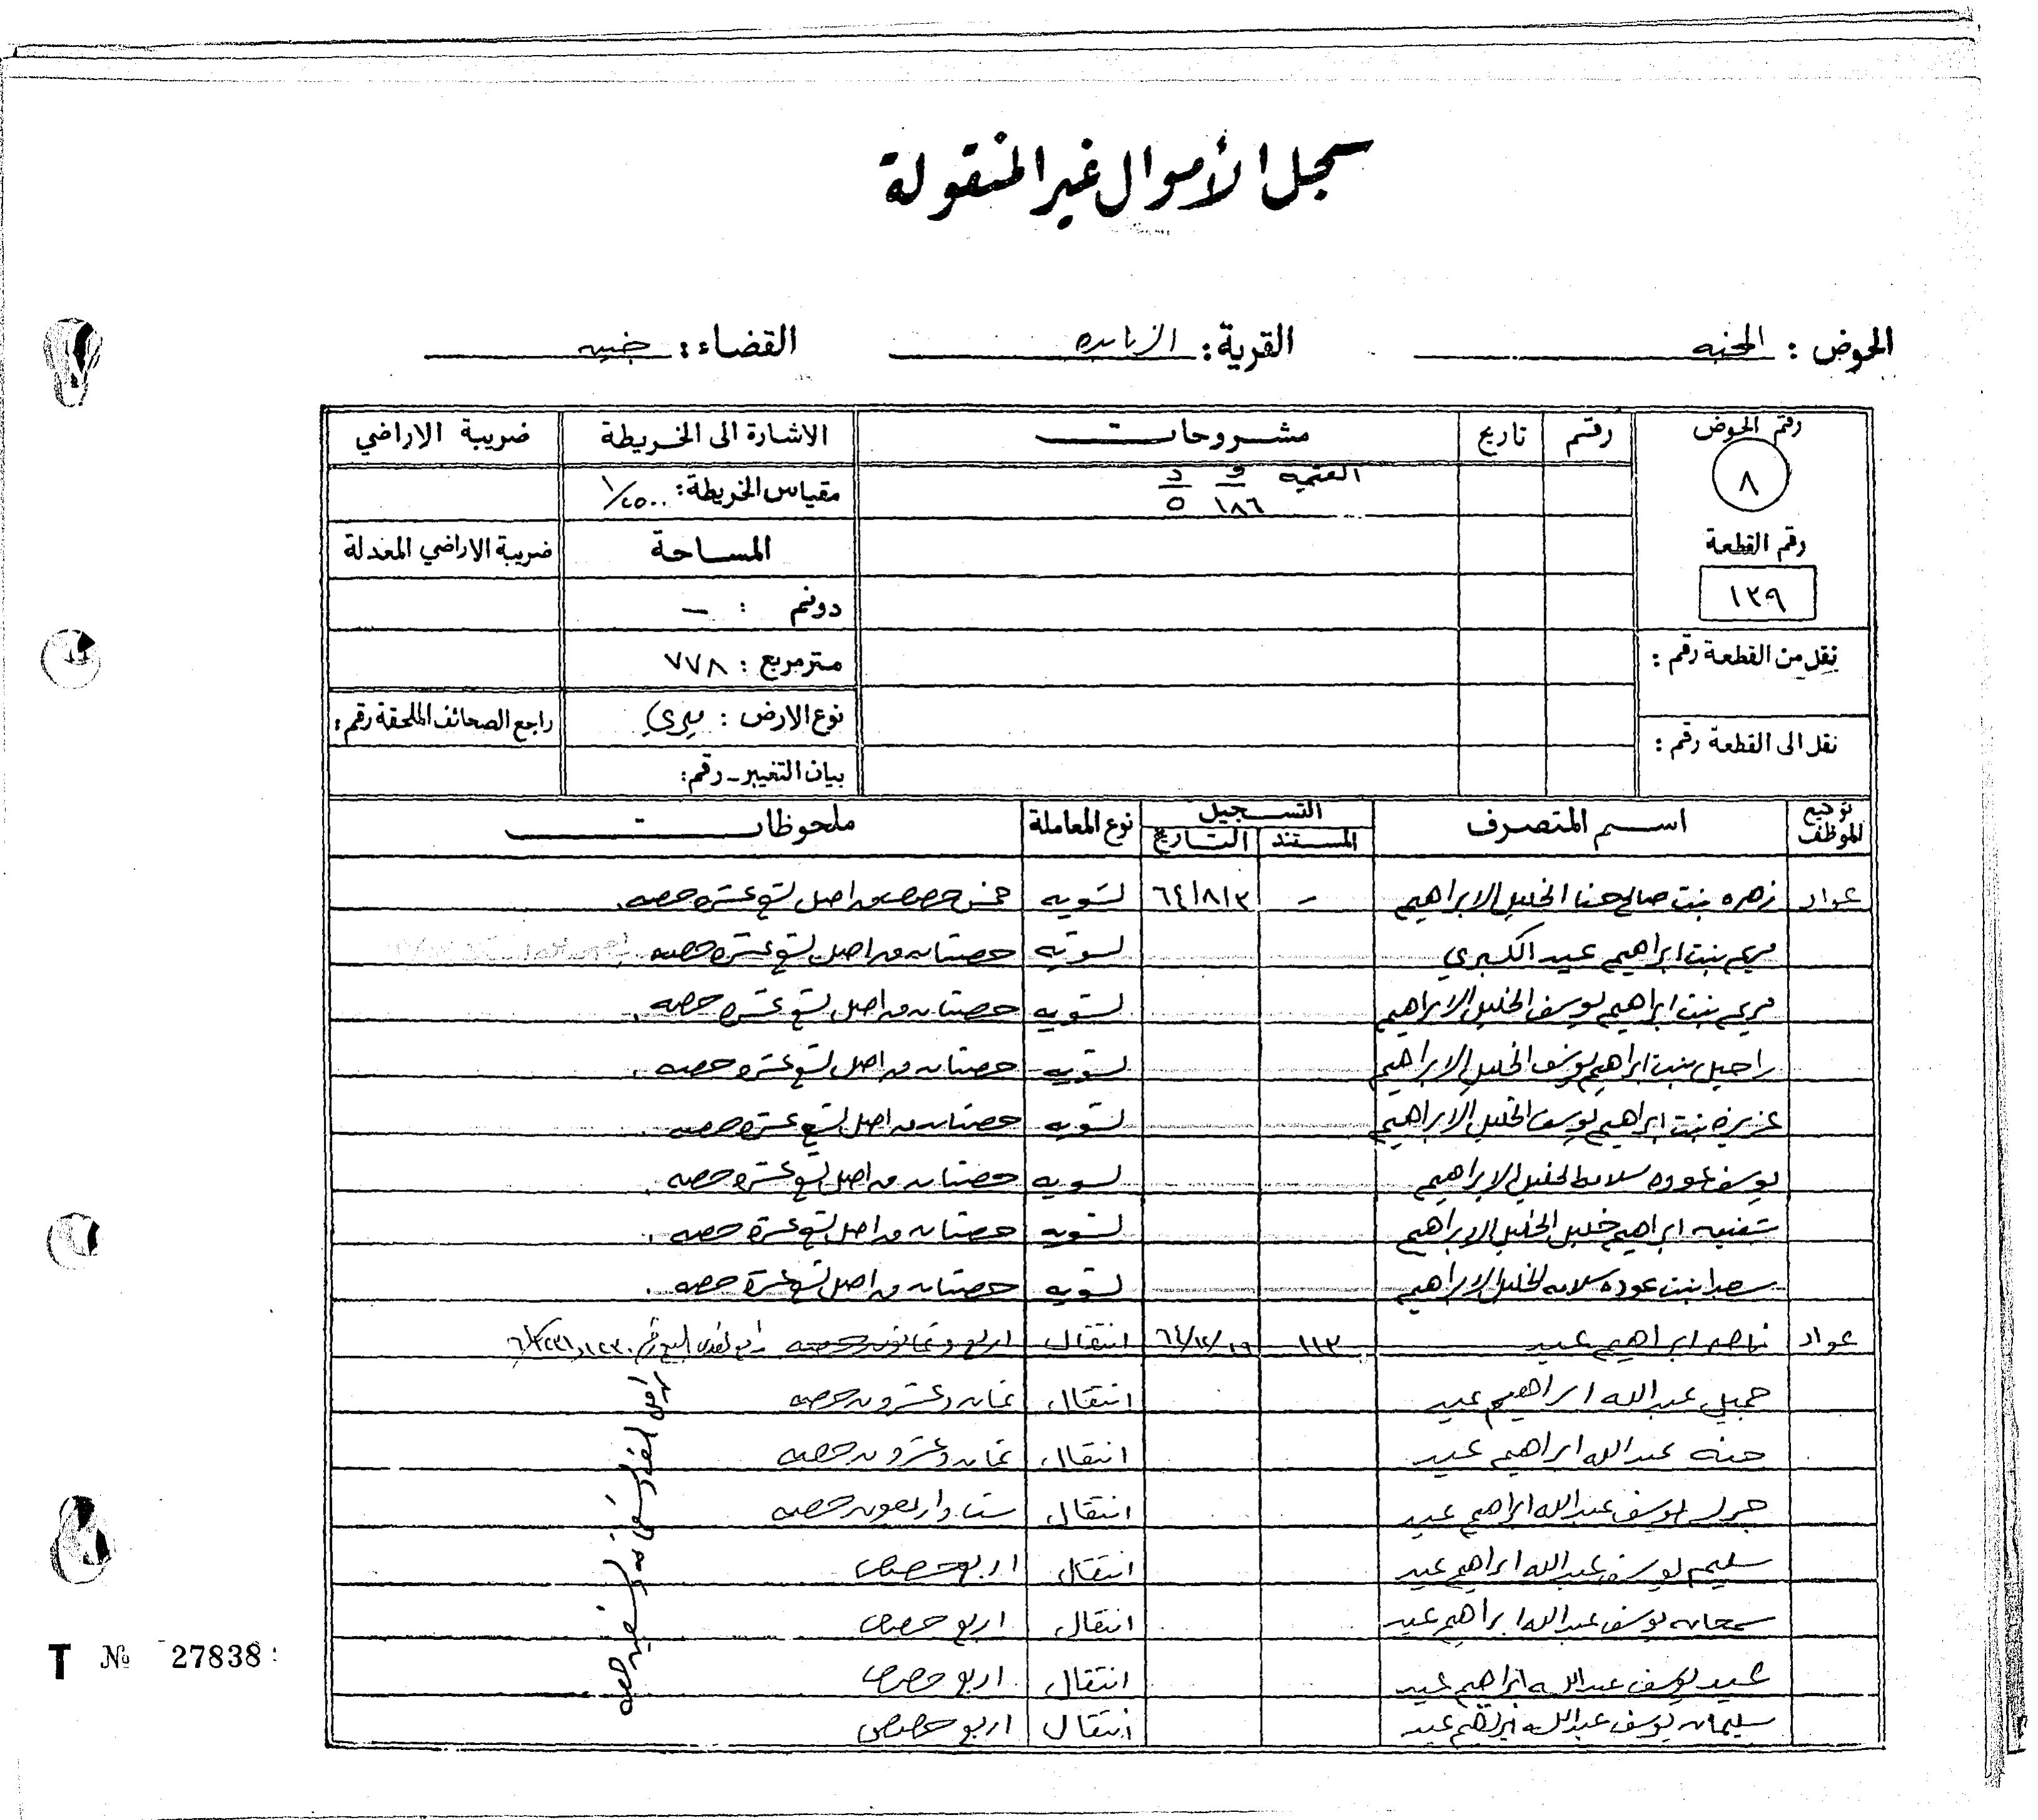 سجل الأموال غير المنقولة
الحوض : القرية : الزبابده القضاء : جنين
رقم الحوض رقم تاريخ مشروحات الاشارة الى الخريطة ضريبة الاراضي
٨ القيمة و د مقياس الخريطة : ١/٢٥٠٠
١٨٦ ٥
رقم القطعة المساحة ضريبة الاراضي المعدلة
١٣٩ دونم : –
نقل من القطعة رقم : متر مربع : ٧٧٨
نوع الارض : ميري راجع الصحائف الملحقة رقم :
نقل الى القطعة رقم :
بيان التغيير - رقم :
توقيع الموظف اسم المتصرف التسجيل نوع المعاملة ملحوظات
المستند التاريخ
عواد زهره بنت صالح حنا الخليل الابراهيم – ٦٤/٨/٣ تسويه خمس حصص من اصل تسع عشرة حصه .
مريم بنت ابراهيم عيد الكبري تسويه حصتان من اصل تسع عشرة حصه
مريم بنت ابراهيم يوسف الخليل الابراهيم تسويه حصتان من اصل تسع عشرة حصه .
راحيل بنت ابراهيم يوسف الخليل الابراهيم تسويه حصتان من اصل تسع عشرة حصه .
عزيزه بنت ابراهيم يوسف الخليل الابراهيم تسويه حصتان من اصل تسع عشرة حصه .
يوسف عوده سلامه الخليل الابراهيم تسويه حصتان من اصل تسع عشرة حصه .
شفيقه ابراهيم خليل الخليل الابراهيم تسويه حصتان من اصل تسع عشرة حصه .
سعدا بنت عوده سلامه الخليل الابراهيم تسويه حصتان من اصل تسع عشرة حصه .
عواد ناصر ابراهيم عيد ١١٣ ٦٤/١٢/١٩ انتقال اربع وثمانون حصه
جميل عبدالله ابراهيم عيد انتقال ثمان وعشرون حصه
حنه عبدالله ابراهيم عيد انتقال ثمان وعشرون حصه
يوسف عبدالله ابراهيم عيد انتقال
سليم يوسف عبدالله ابراهيم عيد انتقال اربع حصص
سمعان يوسف عبدالله ابراهيم عيد انتقال اربع حصص
عيد يوسف عبدالله ابراهيم عيد انتقال اربع حصص
سليمان يوسف عبدالله ابراهيم عيد انتقال اربع حصص
T № 27838